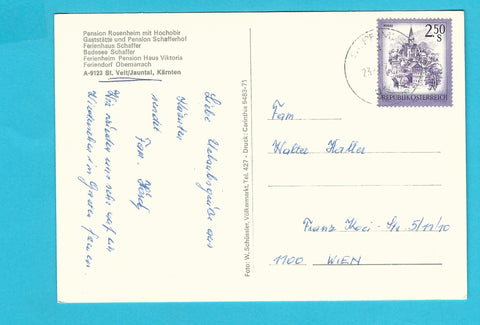 Pension Rosenheim mit Hochobir
Gaststätte und Pension Schafferhof
Ferienhaus Schaffer
Badesee Schaffer
Ferienheim Pension Haus Viktoria
Feriendorf Obernarrach
A-9123 St. Veit/Jauntal, Kärnten
Liebe Urlaubsgrüße aus
Kärnten
sendet
Fam.
Wir würden uns sehr auf ein
Wiedersehen in freuen.
Foto: W. Schüssler, Völkermarkt, Tel. 427 - Druck: Carinthia 9483-71
2.50
S
REPUBLIK ÖSTERREICH
Fam.
Walter Haller
Franz Koci - Str. 5/11/10
1100 WIEN